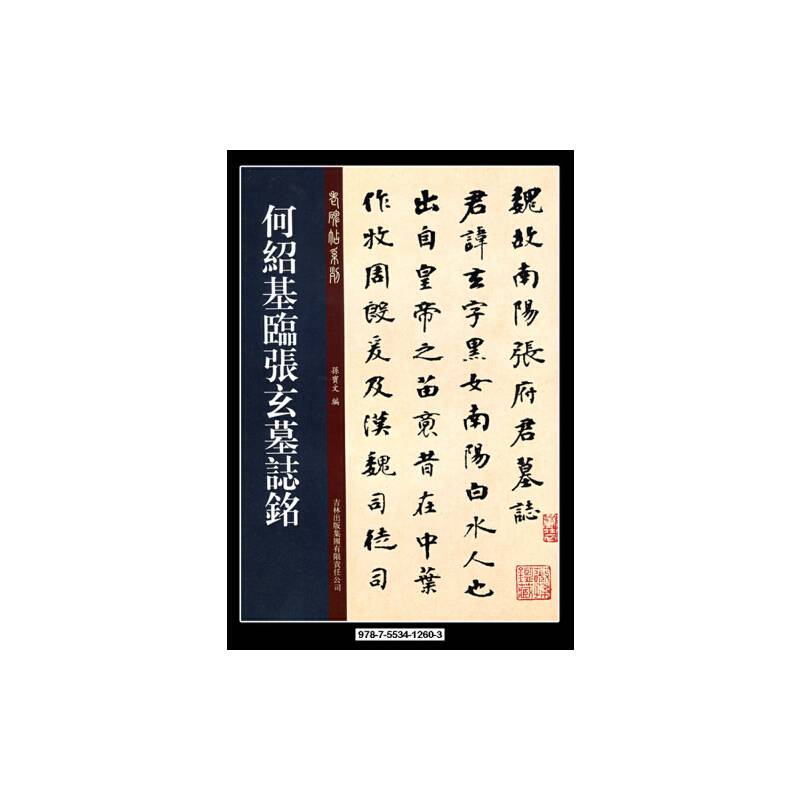 魏故南陽張府君墓誌
君諱玄字黑女南陽白水人也
出自皇帝之苗裔昔在中葉
作牧周殷爰及漢魏司徒司
老碑帖系列
孫寶文 編
吉林出版集團有限責任公司
何紹基臨張玄墓誌銘
978-7-5534-1260-3